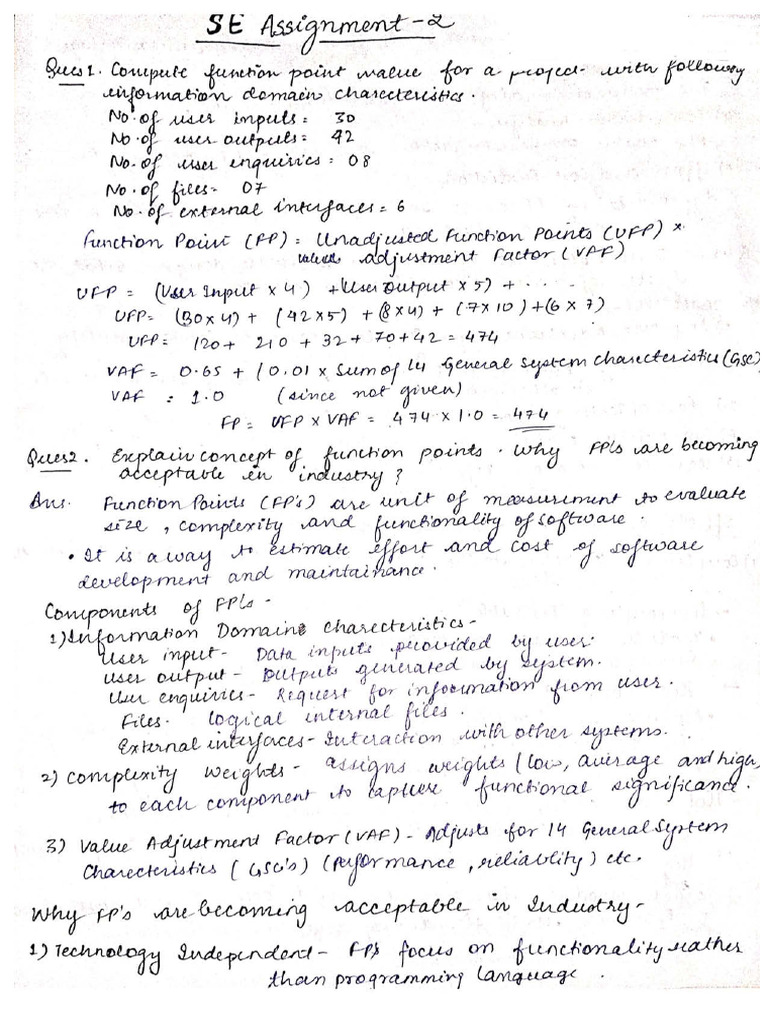 SE Assignment-2
Ques1. Compute function point value for a project with following
information domain characteristics.
No. of user inputs = 30
No. of user outputs = 42
No. of user enquiries = 08
No. of files = 07
No. of external interfaces = 6
Function Point (FP) = Unadjusted Function Points (UFP) ×
value adjustment Factor (VAF)
UFP = (User Input × 4) + (User Output × 5) + . . . .
UFP = (30 × 4) + (42 × 5) + (8 × 4) + (7 × 10) + (6 × 7)
UFP = 120 + 210 + 32 + 70 + 42 = 474
VAF = 0.65 + (0.01 × Sum of 14 General System Characteristics (GSC)
VAF = 1.0 (since not given)
FP = UFP × VAF = 474 × 1.0 = 474
Ques2. Explain concept of function points. Why FP's are becoming
acceptable in industry?
Ans. Function Points (FP's) are unit of measurement to evaluate
size, complexity and functionality of software.
• It is a way to estimate effort and cost of software
development and maintainance.
Components of FP's -
1) Information Domains characteristics -
User input - Data inputs provided by user.
User output - Outputs generated by system.
User enquiries - Request for information from user.
Files - logical internal files.
External interfaces - Interaction with other systems.
2) Complexity Weights - assigns weights (low, average and high)
to each component to capture functional significance.
3) Value Adjustment Factor (VAF) - Adjusts for 14 General System
Characteristics (GSC's) (Performance, reliablity) etc.
Why FP's are becoming acceptable in Industry -
1) Technology Independent - FPs focus on functionality rather
than programming language.